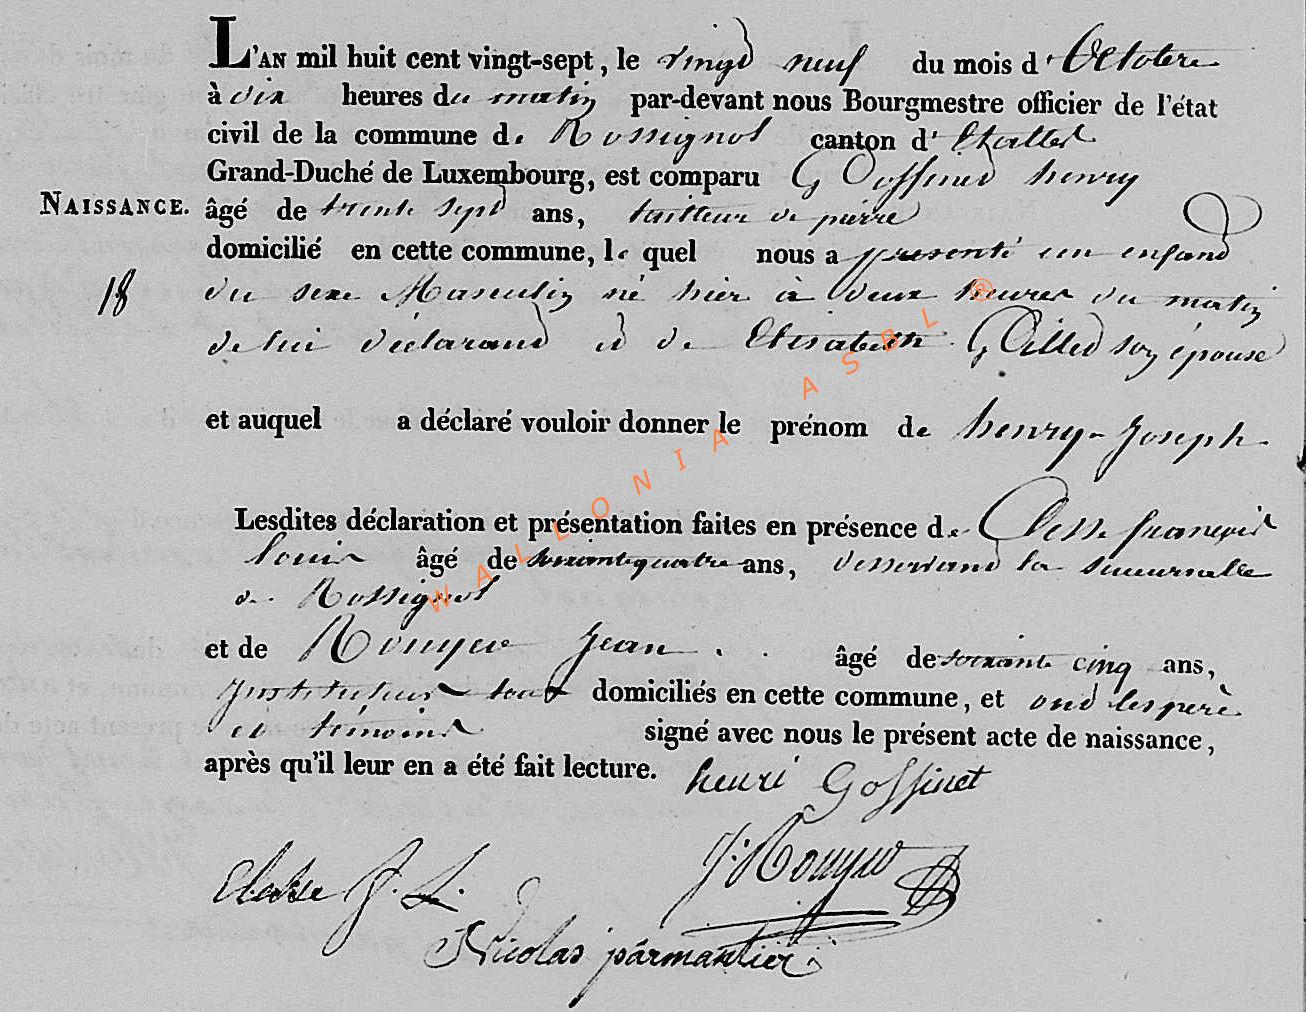 L'AN mil huit cent vingt-sept, le vingt neuf du mois d'Octobre
à dix heures du matin par-devant nous Bourgmestre officier de l'état
civil de la commune de Rossignol canton d'Etalles
Grand-Duché de Luxembourg, est comparu Goffinet henry
NAISSANCE. âgé de trente sept ans, tailleur de pierre
domicilié en cette commune, le quel nous a presenté un enfand
18 du sexe Masculin né hier à deux heures du matin
de lui déclarand et de Elisabeth Gillet son épouse
et auquel a déclaré vouloir donner le prénom de henry-Joseph.
Lesdites déclaration et présentation faites en présence de Clesse françois
louis âgé de soixante quatre ans, desservand la succursalle
de Rossignol
et de Rouyer Jean . . âgé de soixante cinq ans,
Instituteur tous domiciliés en cette commune, et ond les pere
et témoins signé avec nous le présent acte de naissance,
après qu'il leur en a été fait lecture. henri Goffinet
J: Rouyer
Clesse f. L.
Nicolas parmantier
WALLONIA ASBL ®